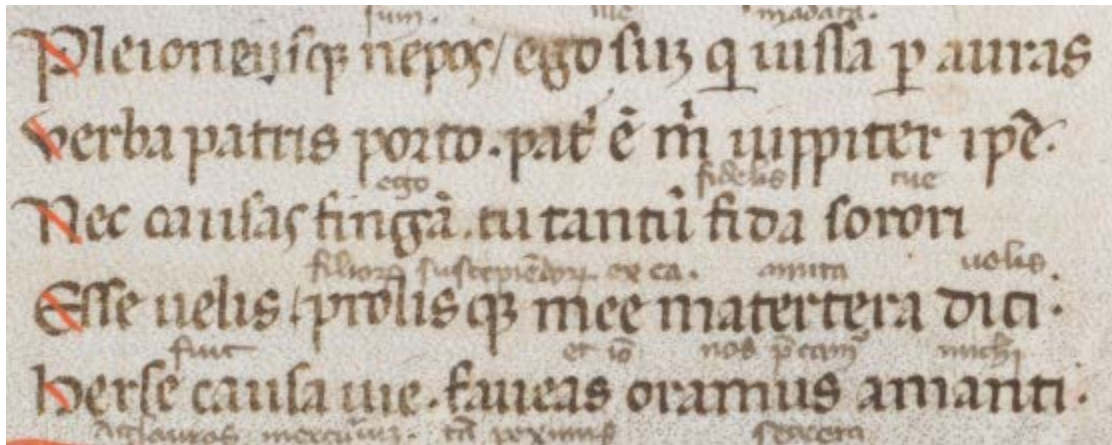 sum. me madata.
Pleioneijsqꝫ nepos / ego suꝫ q iussa ꝑ auras
verba patris porto . pat̾ ē m̍ iuppiter ip̄e .
ego fidelis tue
Nec causas fingā . tu tantū fida sorori
filioꝝ suscepiēdoꝝ ex ea . amita uelis .
Esse uelis / prolis qꝫ mee matertera dici .
fuit et iō nos p̄cam᷒ michi
herse causa uie . faueas oramus amanti .
Aglauros mercuriuꝫ . secreta